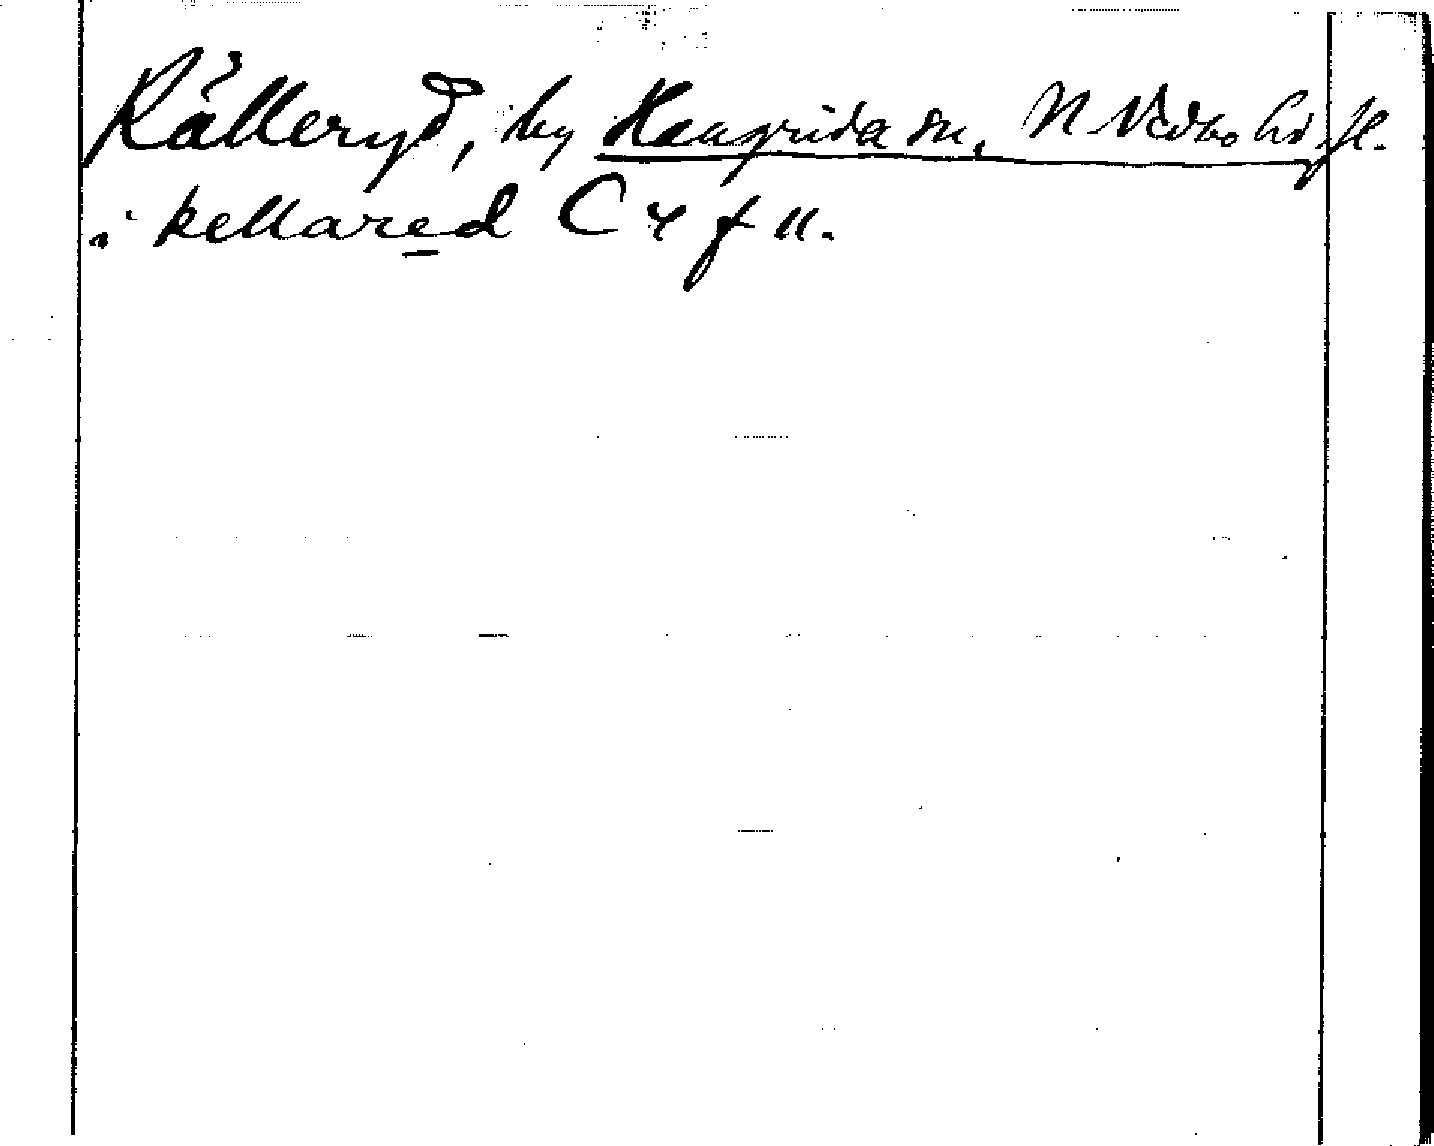 Källeryd, by Haurida sn, N Vedbo hd, Jl.
i kellared C 4 f 11.